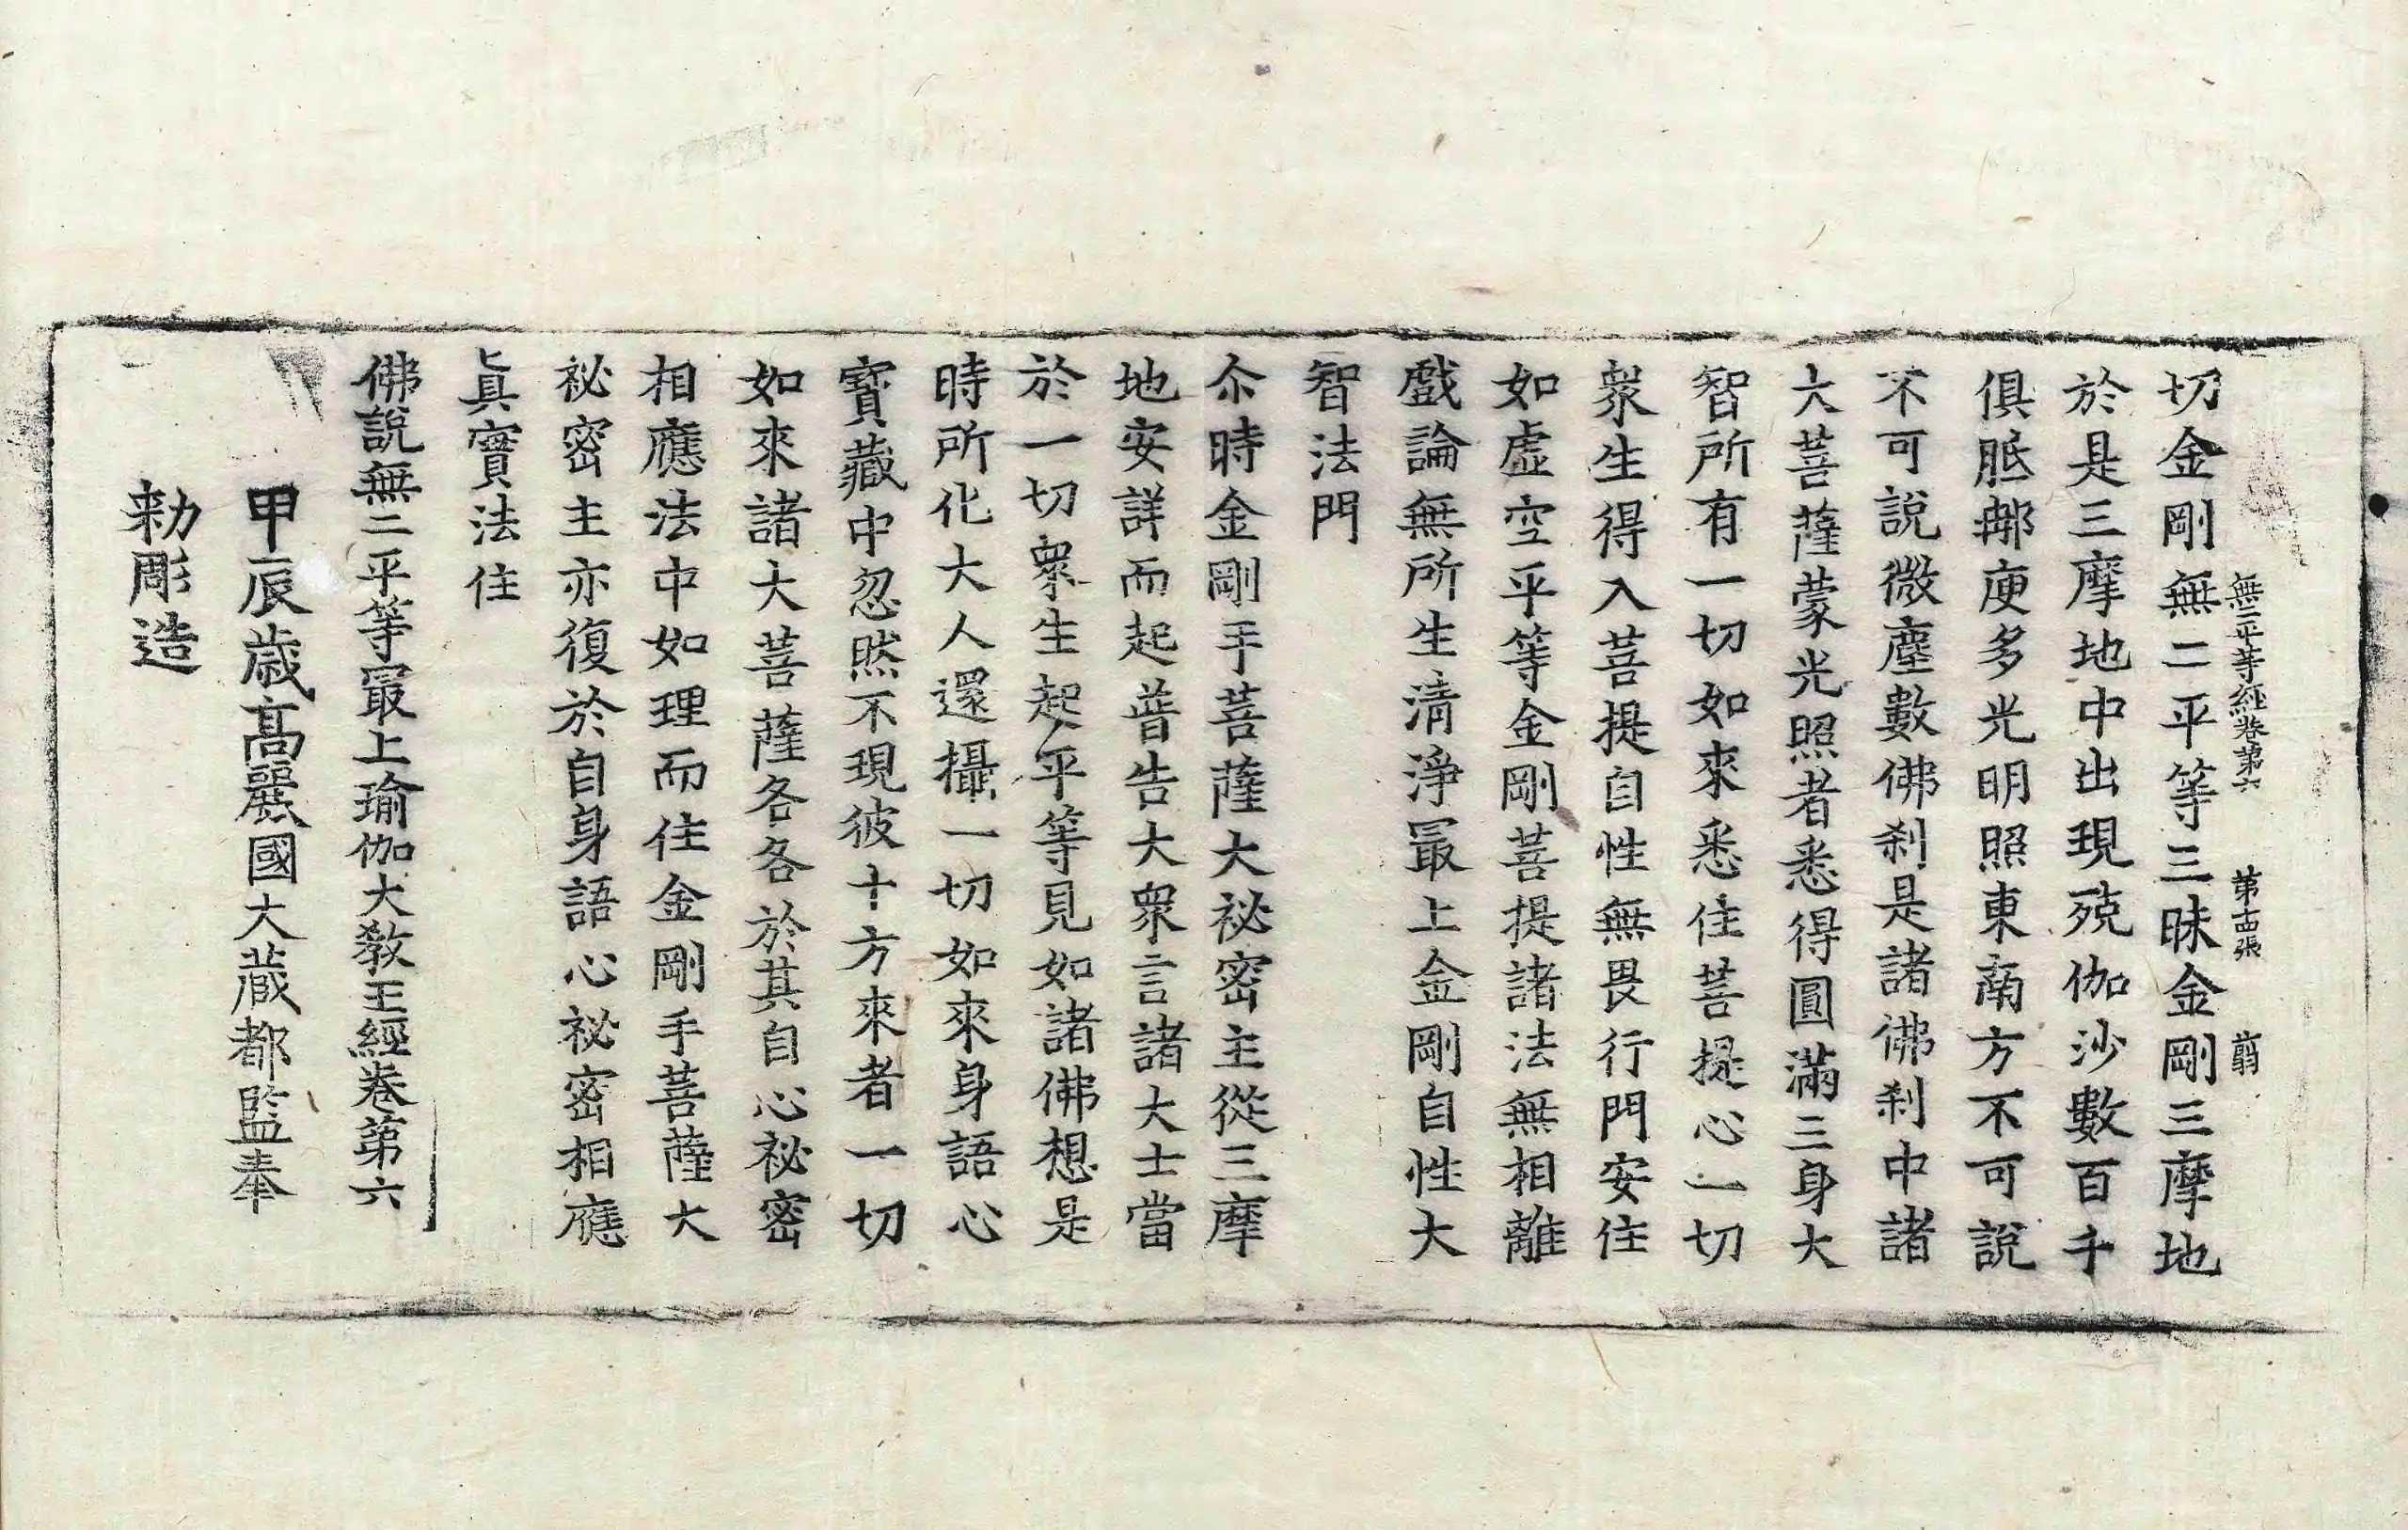 無二平等經卷第六 第十四張 翦
切金剛無二平等三昧金剛三摩地
於是三摩地中出現殑伽沙數百千
俱胝那庾多光明照東南方不可說
不可說微塵數佛刹是諸佛刹中諸
大菩薩蒙光照者悉得圓滿三身大
智所有一切如來悉住菩提心一切
衆生得入菩提自性無畏行門安住
如虛空平等金剛菩提諸法無相離
戲論無所生清淨冣上金剛自性大
智法門
尒時金剛手菩薩大祕密主從三摩
地安詳而起普告大衆言諸大士當
於一切衆生起平等見如諸佛想是
時所化大人還攝一切如來身語心
寶藏中忽然不現彼十方來者一切
如來諸大菩薩各各於其自心祕密
相應法中如理而住金剛手菩薩大
祕密主亦復於自身語心祕密相應
眞實法住
佛說無二平等冣上瑜伽大敎王經卷第六
甲辰歲高麗國大藏都監奉
勅彫造